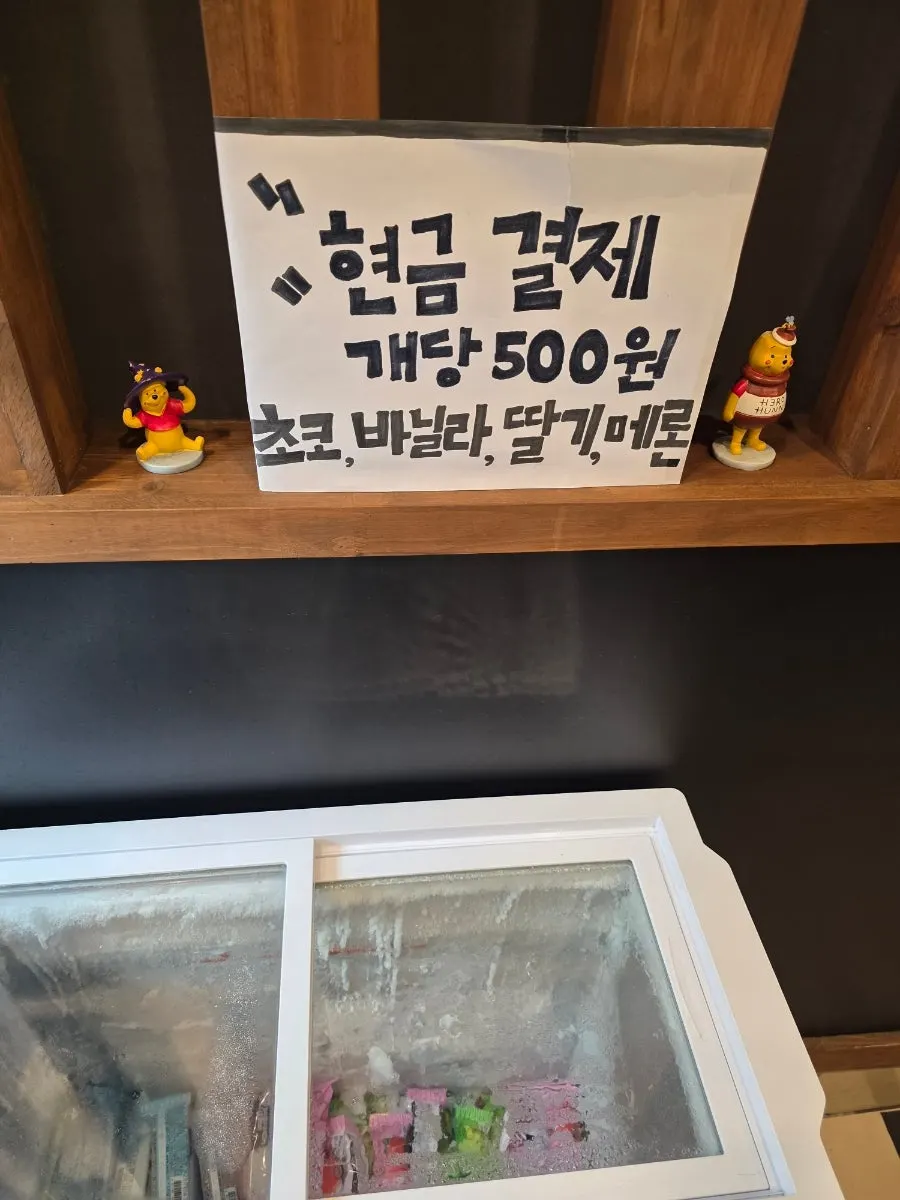 " 현금 결제 "
개당 500원
초코, 바닐라, 딸기, 메론
HUNN